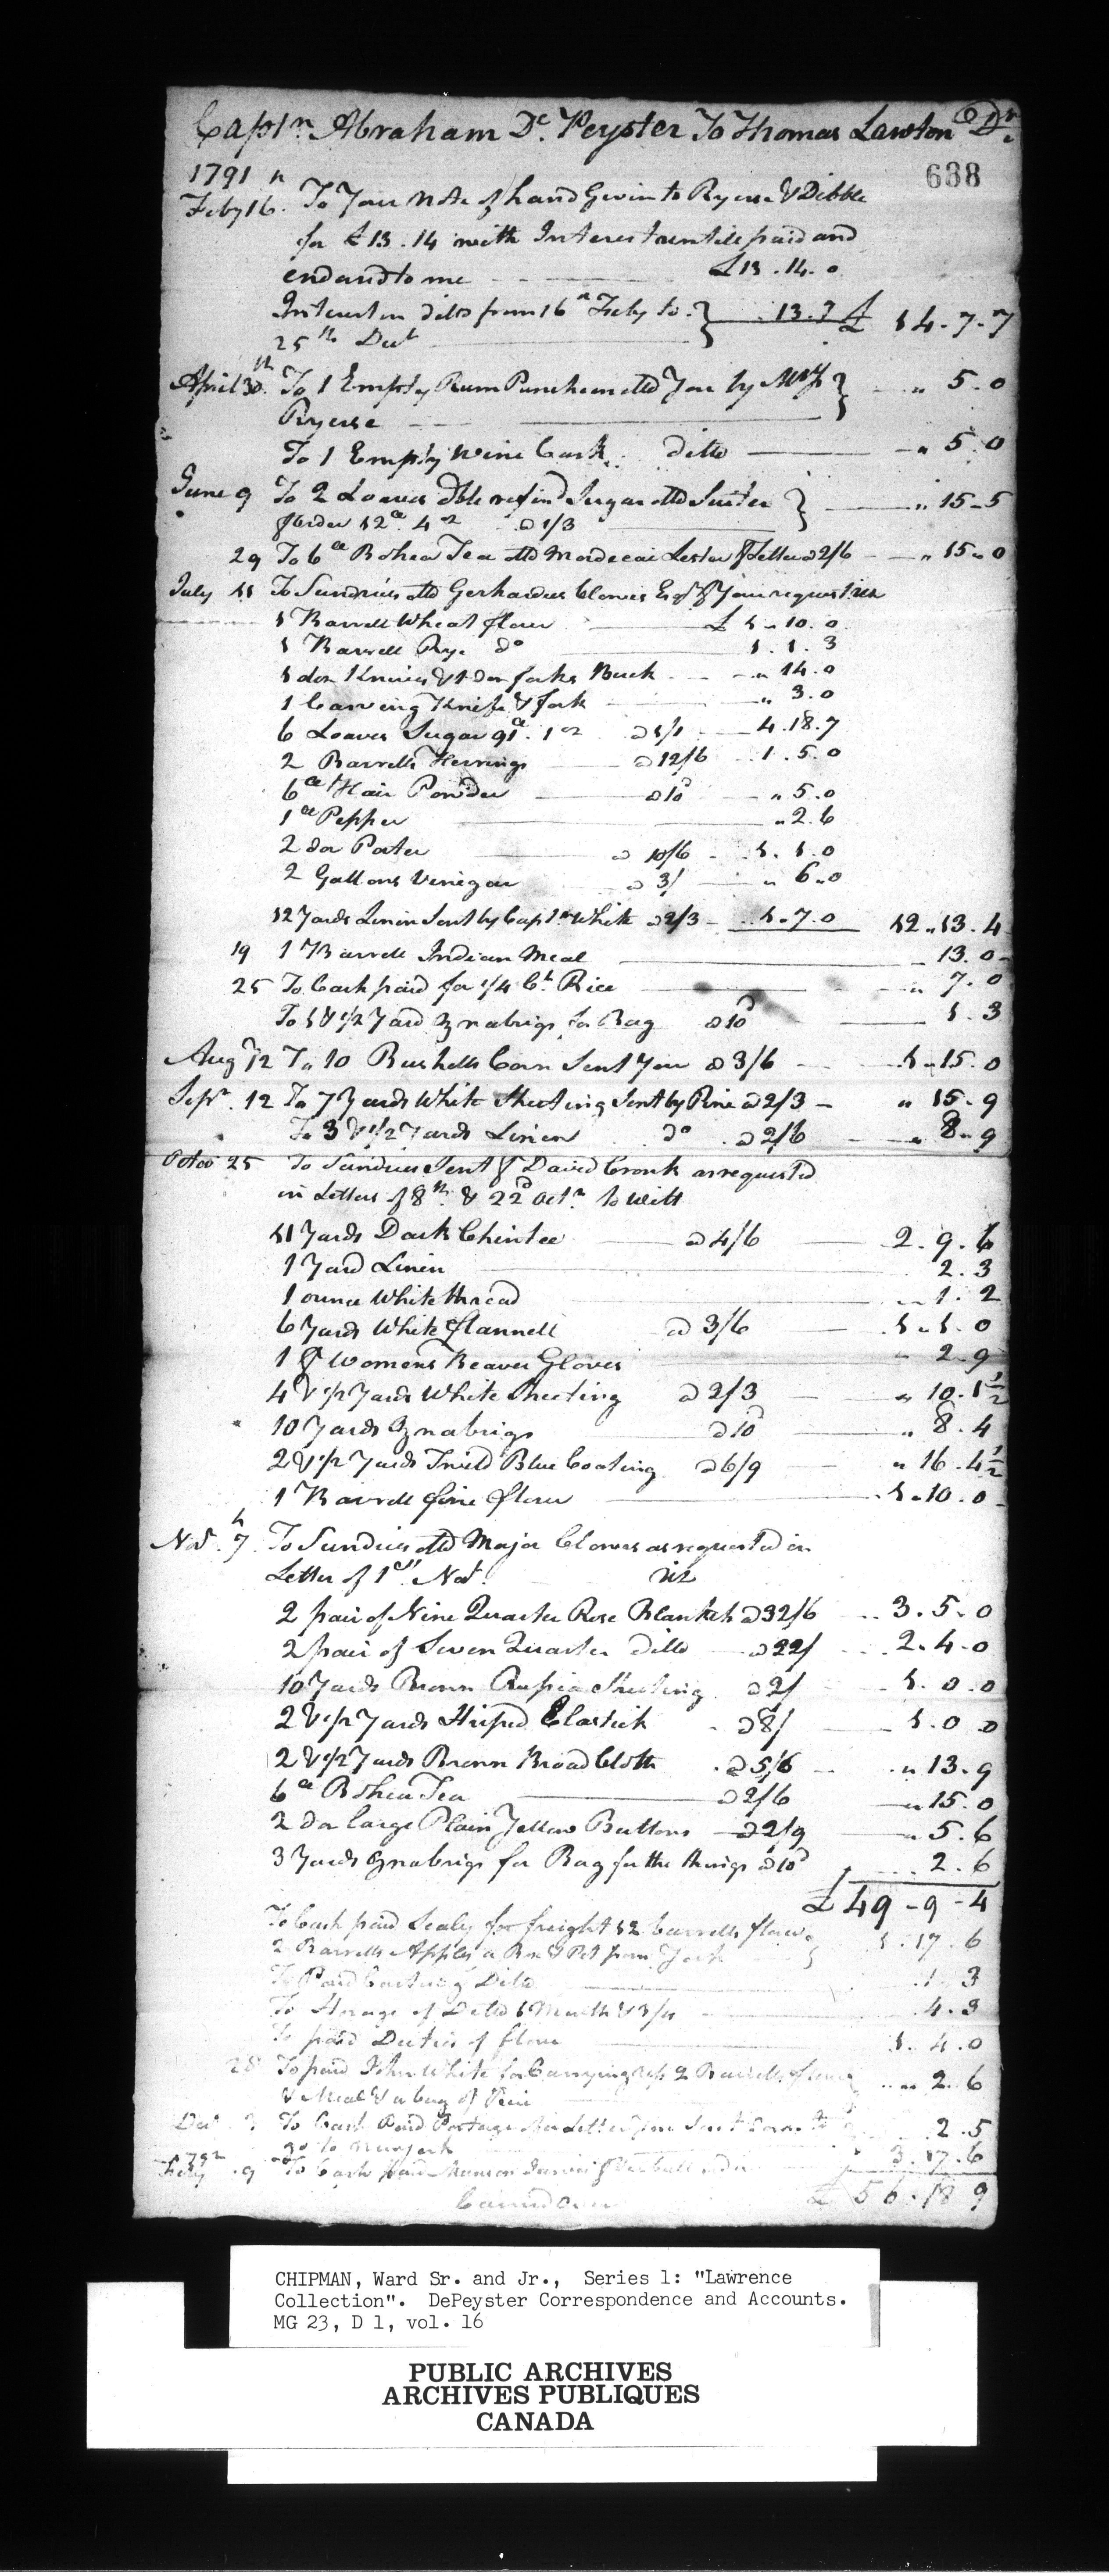 Captn. Abraham De Peyster To Thomas Lawton Dr.
638
1791
Feby 16. To Your Note of hand Given to Ryerse & Dibble
for £13.14 with Interest untill paid and
endorsd to me £13.14.0
Interest on ditto from 16th Feby to 13.7 £14.7.7
25th Dect
April 30th To 1 Empty Rum Puncheon dld You by Mr
Ryerse " 5.0
To 1 Empty Wine Cask ditto " 5.0
June 9 To 2 Loaves dble refind Sugar dld " 15.5
⅌ order 12 lb 4 oz @ 1/3
29 To 6 lb Bohea Tea dld Mordecai Lester ⅌ Letter @ 2/6 " 15.0
July 11 To Sundries dld Gerhardus Clowes Esqr ⅌ Your request
1 Barrell Wheat flour £1.10.0
1 Barrell Rye do 1.1.3
1 doz Knives & 1 doz forks Buck " 14.0
1 Carving Knife & fork " 3.0
6 Loaves Sugar 91 lb. 1 oz @ 1/1 4.18.7
2 Barrells Herrings @ 12/6 1.5.0
6 lb Hair Powder @ 10d " 5.0
1 lb Pepper " 2.6
2 doz Porter @ 10/6 1.1.0
2 Gallons Vinegar @ 3/ " 6.0
12 Yards Linen Sent by Captn White @ 2/3 1.7.0 12.13.4
19 1 Barrell Indian Meal 13.0
25 To Cash paid for 1/4 Ct Rice " 7.0
To 1 & 1/2 Yard Oznabrigs for Bag @ 10d 1.3
Augt 12 To 10 Bushells Corn Sent You @ 3/6 1.15.0
Sepr. 12 To 7 Yards White Sheeting Sent by Pine @ 2/3 " 15.9
To 3 & 1/2 Yards Linen do @ 2/6 " 8.9
Octor 25 To Sundries Sent ⅌ David Cronk as requested
in Letters of 8th & 22d Octr. to Witt
11 Yards Dark Chintee @ 4/6 2.9.6
1 Yard Linen 2.3
1 ounce White thread 1.2
6 Yards White flannell @ 3/6 1.1.0
1 ⅌ Womens Beaver Gloves 2.9
4 & 1/2 Yards White Sheeting @ 2/3 " 10.1½
10 Yards Oznabrigs @ 10d " 8.4
2 & 1/2 Yards Blue Coating @ 6/9 " 16.4½
1 Barrell fine flour 1.10.0
Nov. 7th To Sundries dld Major Clowes as requested in
Letter of 1st Novr. viz
2 pair of Nine Quarter Rose Blankets @ 32/6 3.5.0
2 pair of Seven Quarter ditto @ 22/ 2.4.0
10 Yards Brown Russia Sheeting @ 2/ 1.0.0
2 & 1/2 Yards Striped Elastick @ 8/ 1.0.0
2 & 1/2 Yards Brown Broad Cloth @ 5/6 " 13.9
6 lb Bohea Tea @ 2/6 " 15.0
2 doz large Plain Yellow Buttons @ 2/9 " 5.6
3 Yards Oznabrigs for Bag for the things @ 10d 2.6
£49-9-4
To Cash paid Sealy for freight 12 barrells flour 1.17.6
2 Barrells Apples a Box & Pot from York
To Paid Carting of Ditto 1.3
To Storage of Ditto 1 Month & 3/4 4.3
To paid Duties of flour 1.4.0
28 To paid John White for Carrying up 2 Barrells flour " 2.6
& Meal & a bag of Rice
Decr 3 To Cash Paid Postage for Letter You Sent 2.5
to Newyork
1792
Feby 9 To Cash paid Munson Jarvis 3.17.6
Carrid over £56.18.9
CHIPMAN, Ward Sr. and Jr., Series 1: "Lawrence
Collection". DePeyster Correspondence and Accounts.
MG 23, D 1, vol. 16
PUBLIC ARCHIVES
ARCHIVES PUBLIQUES
CANADA